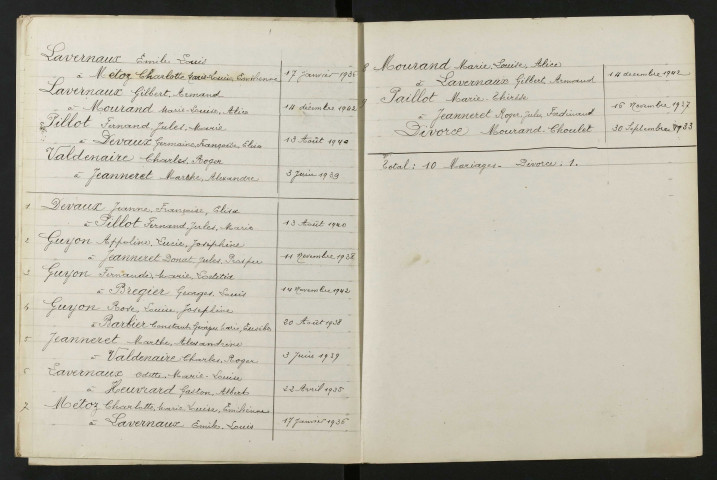 Lavernaux Emile Louis
à Métoz Charlotte Marie Louise Emilienne 17 janvier 1935
Lavernaux Gilbert, Armand
à Mourand Marie Louise, Alice 14 décembre 1942
Pillot Fernand, Jules, Marie
à Devaux Germaine Françoise, Elisa 13 Août 1940
Valdenaire Charles, Roger
à Jeanneret Marthe, Alexandre 3 juin 1939
1 Devaux Jeanne, Françoise, Elisa
à Pillot Fernand, Jules, Marie 13 Août 1940
2 Guyon Appoline, Lucie, Joséphine
à Jeanneret Donat, Jules, Prosper 11 Novembre 1938
3 Guyon Fernande, Marie, Laetitie
à Bregier Georges, Louis 14 Novembre 1942
4 Guyon Rose, Louise, Joséphine
à Barbier Constant, Georges 20 Août 1938
5 Jeanneret Marthe, Alexandrine
à Valdenaire Charles, Roger 3 juin 1939
6 Lavernaux Odette, Marie-Louise
à Heuvrard Gaston, Albert 22 Avril 1935
7 Métoz Charlotte, Marie, Louise, Emilienne
à Lavernaux Emile, Louis 17 janvier 1935
8 Mourand Marie, Louise, Alice
à Lavernaux Gilbert, Armand 14 décembre 1942
9 Paillot Marie-Thérèse
à Jeanneret Roger, Jules, Ferdinand 16 Novembre 1937
Divorce Mourand-Choulet 30 Septembre 1933
Total: 10 Mariages - Divorce: 1.